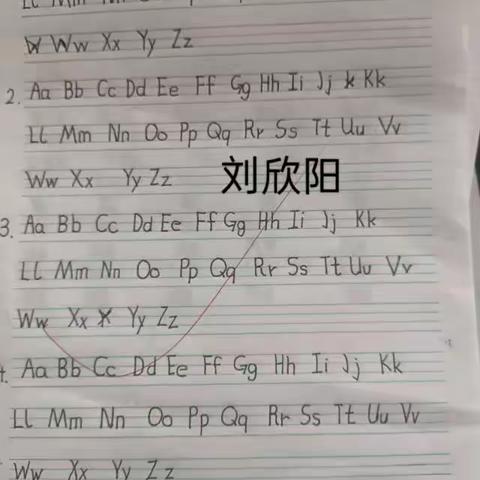 Ll Mm Nn
W Ww Xx Yy Zz
2. Aa Bb Cc Dd Ee Ff Gg Hh Ii Jj k Kk
Ll Mm Nn Oo Pp Qq Rr Ss Tt Uu Vv
Ww Xx Yy Zz
刘欣阳
3. Aa Bb Cc Dd Ee Ff Gg Hh Ii Jj Kk
Ll Mm Nn Oo Pp Qq Rr Ss Tt Uu Vv
Ww Xx x Yy Zz
4. Aa Bb Cc Dd Ee Ff Gg Hh Ii Jj Kk
Ll Mm Nn Oo Pp Qq Rr Ss Tt Uu Vv
Ww Xx Yy Zz